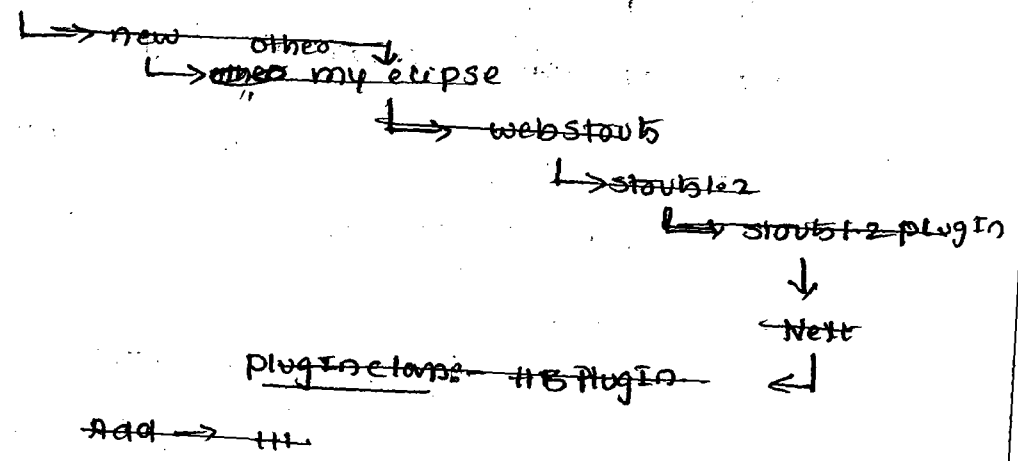 new other
other my eclipse
web struts
struts 1.2
struts 1.2 plugIn
Next
plugIn class:- HB PlugIn
Add